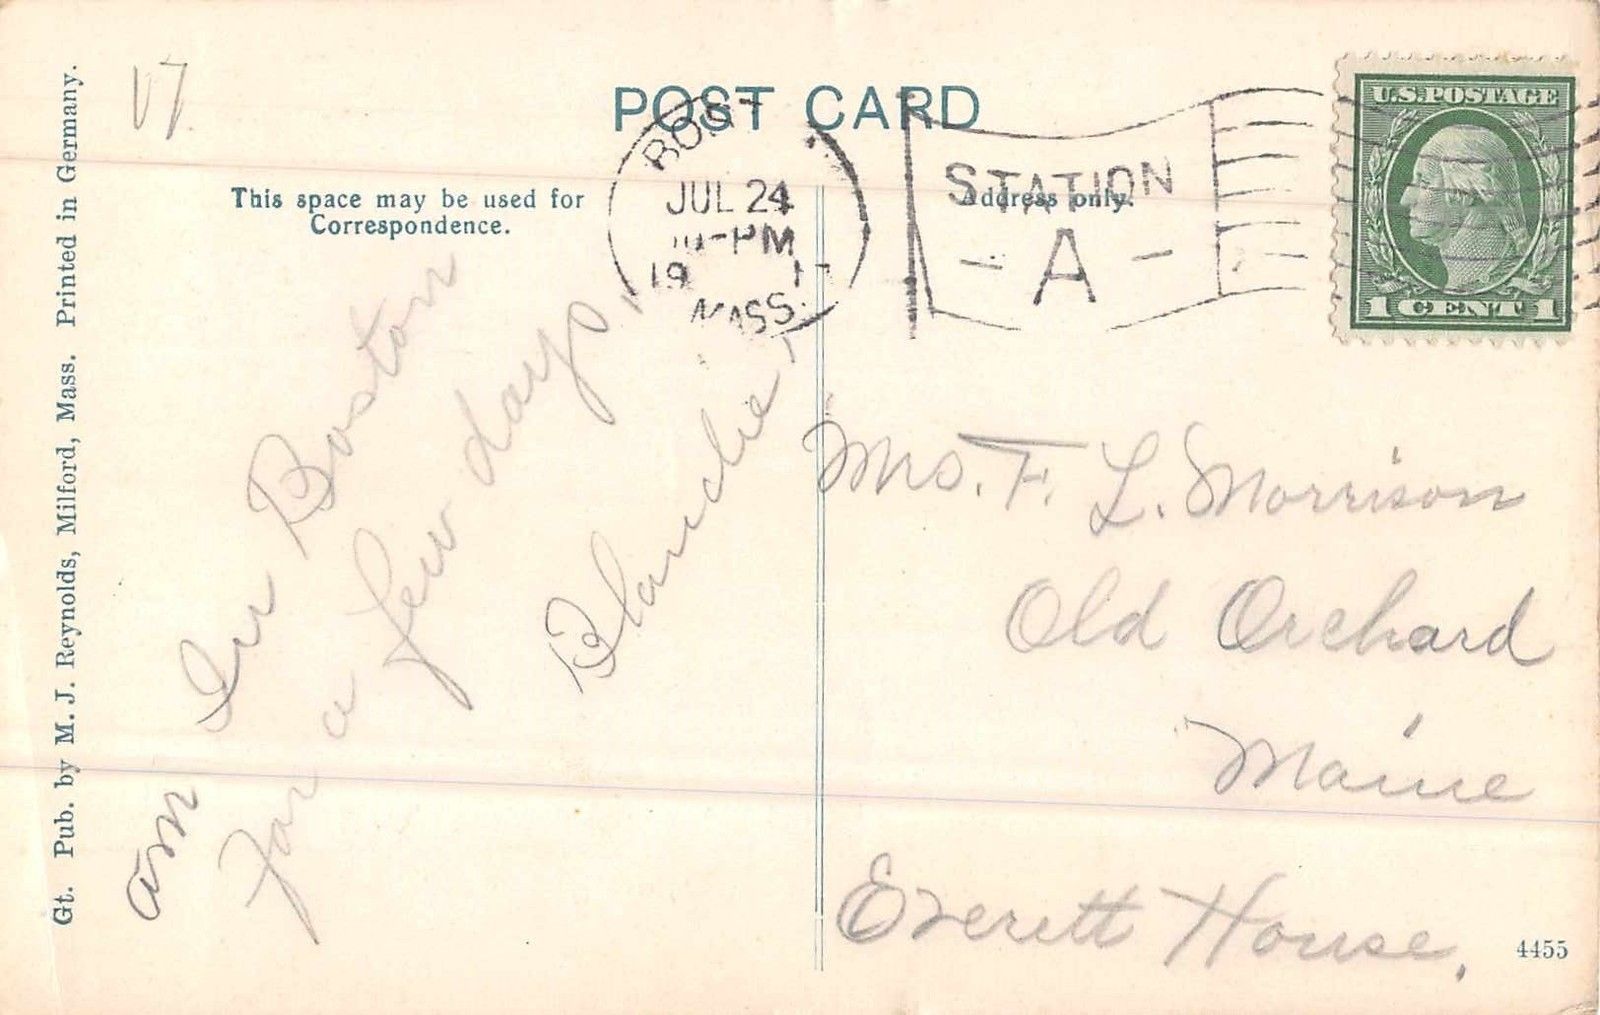 Gt. Pub. by M. J. Reynolds, Milford, Mass. Printed in Germany.
17
POST CARD
This space may be used for
Correspondence.
Address only.
JUL 24
PM
19
MASS.
STATION
- A -
U.S. POSTAGE
1 CENT 1
am In Boston
For a few days,
Blanche,
Mrs. F. L. Morrison
Old Orchard
Maine
Everett House.
4455